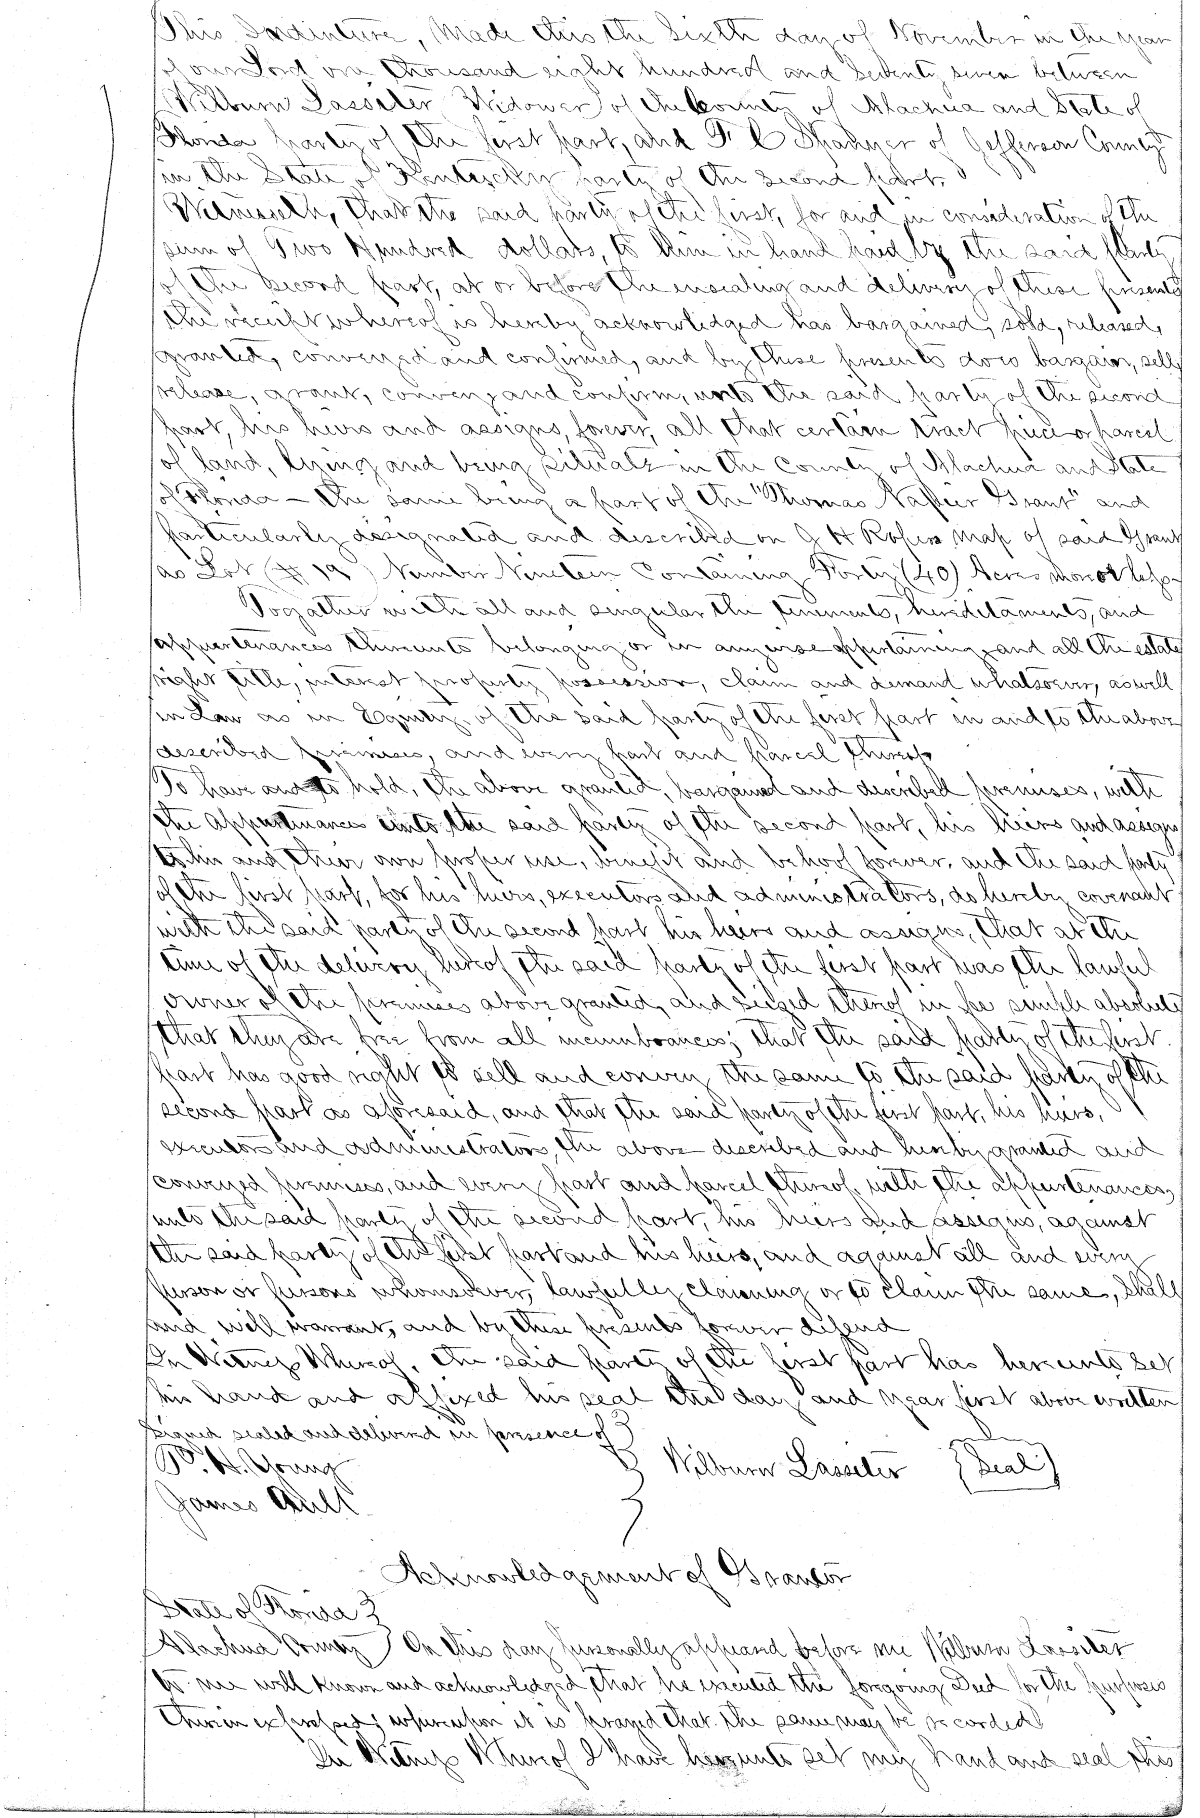 This Indenture, Made this the Sixth day of November in the year
of our Lord one thousand eight hundred and Seventy seven between
Wilburn Lasseter Widower of the County of Alachua and State of
Florida party of the first part, and F C of Jefferson County
in the State of Kentuckey party of the second part.
Witnesseth, that the said party of the first, for and in consideration of the
sum of Two Hundred dollars, to him in hand paid by the said party
of the second part, at or before the ensealing and delivery of these presents
the receipt whereof is hereby acknowledged has bargained, sold, released,
granted, conveyed and confirmed, and by these presents does bargain, sell,
release, grant, convey, and confirm, unto the said party of the second
part, his heirs and assigns, forever, all that certain tract piece or parcel
of land, lying and being situate in the County of Alachua and State
of Florida — the same being a part of the "Thomas Napier Grant" and
particularly designated and described on J H map of said Grant
as Lot (# 19) Number Nineteen Containing Forty (40) Acres more or less
Togather with all and singular the tenements, hereditaments, and
appurtenances thereunto belonging or in anywise appertaining, and all the estate
right title, interest property possession, claim and demand whatsoever, as well
in Law as in Equity, of the said party of the first part in and to the above
described premises, and every part and parcel thereof
To have and to hold, the above granted, bargained and described premises, with
the appurtenances unto the said party of the second part, his heirs and assigns
to his and their own proper use, benefit and behoof forever. and the said party
of the first part, for his heirs, executors and administrators, do hereby covenant
with the said party of the second part his heirs and assigns, that at the
time of the delivery hereof the said party of the first part was the lawful
owner of the premises above granted, and seized thereof in fee simple absolute
that they are free from all incumbrances; that the said party of the first
part has good right to sell and convey the same to the said party of the
second part as aforesaid, and that the said party of the first part, his heirs,
executors and administrators, the above described and hereby granted and
conveyed premises, and every part and parcel thereof, with the appurtenances,
unto the said party of the second part, his heirs and assigns, against
the said party of the first part and his heirs, and against all and every
person or persons whomsoever, lawfully claiming or to claim the same, shall
and will warrant, and by these presents forever defend
In Witness Whereof, the said party of the first part has hereunto set
his hand and affixed his seal the day and year first above written
Signed sealed and delivered in presence of
P. H. Young Wilburn Lasseter (Seal)
James Ault
Acknowledgement of Grantor
State of Florida
Alachua County On this day personally appeared before me Wilburn Lasseter
to me well known and acknowledged, that he executed the foregoing Deed for the purposes
therein expressed; whereupon it is prayed that the same may be recorded
In Witness Whereof I have hereunto set my hand and seal this